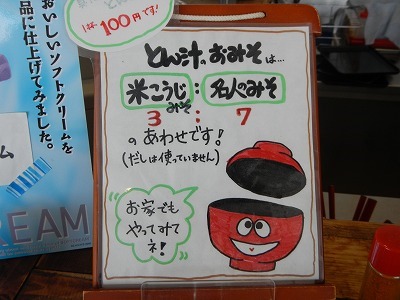 1杯100円です!
おいしいソフトクリームを
品に仕上げてみました。
ム
REAM
とん汁のおみそは…
米こうじみそ : 名人のみそ
3 : 7
のあわせです!
(だしは使っていません)
お家でも
やってみて
ネ!